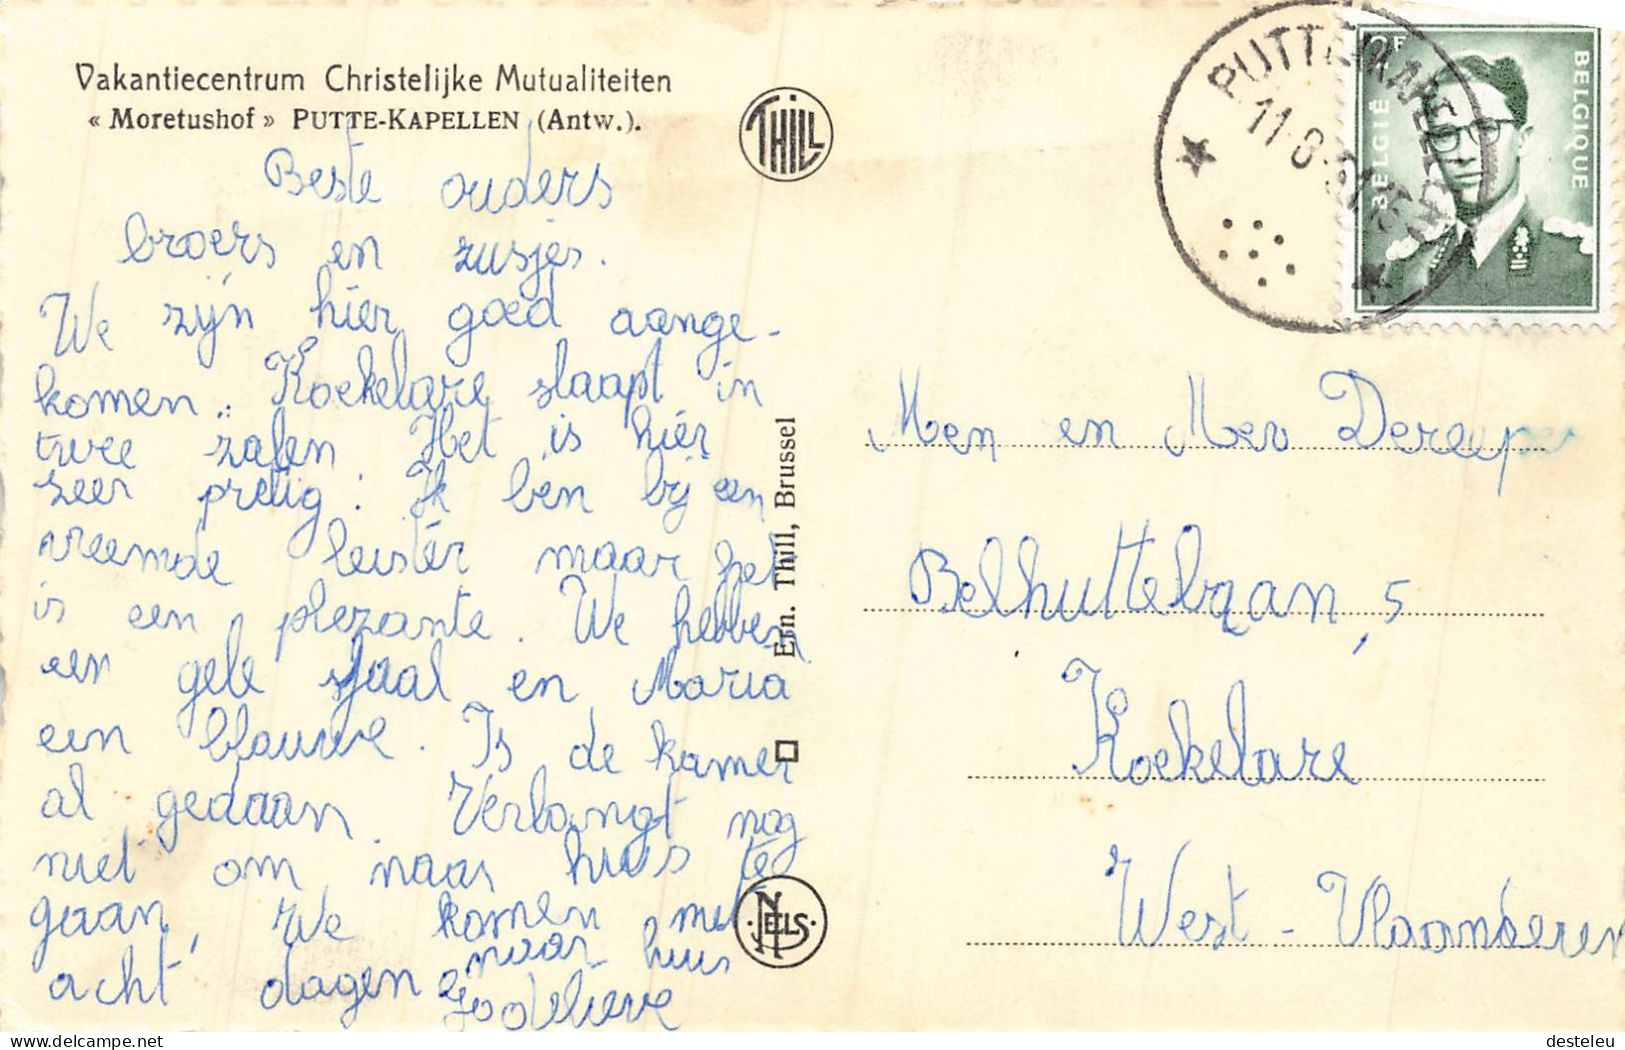 Vakantiecentrum Christelijke Mutualiteiten
« Moretushof » PUTTE-KAPELLEN (Antw.).
THILL
Beste ouders
broers en zusjes.
We zijn hier goed aange-
komen. Koekelare slaapt in
twee zalen. Het is hier
zeer pretig! Ik ben bij een
vreemde leister maar het
is een plezante. We hebben
een gele sjaal en Maria
een blauwe. Is de kamer
al gedaan. Verlangt nog
niet om naar huis te
gaan, We komen met
acht dagen naar huis
Godelieve
Ern. Thill, Brussel
NELS
PUTTE-KAPELLEN
11-8-
2F
BELGIË
BELGIQUE
Men en Mev Dereeper
Belhuttebaan, 5
Koekelare
West-Vlaanderen
www.delcampe.net
desteleu